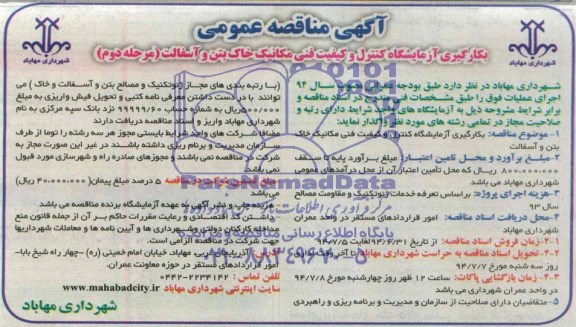 آگهی مناقصه عمومی
بکارگیری آزمایشگاه کنترل و کیفیت فنی مکانیک خاک بتن و آسفالت (مرحله دوم)
شهرداری مهاباد
شهرداری مهاباد
شهرداری مهاباد در نظر دارد طبق بودجه عمرانی سال ۹۴
اجرای عملیات فوق را طبق مشخصات فنی در اسناد مناقصه و
برابر شرایط مشروحه ذیل به آزمایشگاه های واجد شرایط دارای رتبه و
صلاحیت مجاز در تمامی رشته های مورد نظر واگذار نماید:
۱-موضوع مناقصه: بکارگیری آزمایشگاه کنترل و کیفیت فنی مکانیک خاک
بتن و آسفالت
۲-مبلغ برآورد و محل تامین اعتبار: مبلغ برآورد پایه تا سقف
۸۰۰۰۰۰۰۰۰۰ ریال که محل تأمین اعتبار آن از محل درآمدهای عمومی
شهرداری مهاباد می باشد
۳-هزینه اجرای پروژه: براساس تعرفه خدمات ژئوتکنیک و مقاومت مصالح
سال ۹۳
۴-محل دریافت اسناد مناقصه: امور قراردادهای مستقر در واحد عمران
شهرداری مهاباد
۱-۴-زمان فروش اسناد مناقصه: از تاریخ ۹۴/۶/۳۱ لغایت ۹۴/۷/۵
۲-۴-تحویل اسناد مناقصه به حراست شهرداری مهاباد: تا آخر وقت اداری
روز سه شنبه مورخ ۹۴/۷/۷
۳-۴-زمان بازگشایی پاکات: ساعت ۱۲ ظهر روز چهارشنبه مورخ ۹۴/۷/۸
در واحد عمران شهرداری می باشد
۵-متقاضیان دارای صلاحیت از سازمان و مدیریت و برنامه ریزی و راهبردی
(با رتبه بندی های مجاز ژئوتکنیک و مصالح بتن و آسفالت و خاک) می
توانند با در دست داشتن معرفی نامه کتبی و تحویل فیش واریزی به مبلغ
۵۰۰/۰۰۰ریال به شماره حساب ۹۹۹۹۹/۶۰ نزد بانک سپه مرکزی به نام
شهرداری مهاباد واریز و اسناد مناقصه دریافت دارند
مضافا شرکت های واجد شرایط بایستی مجوز هر سه رشته را توما از طرف
سازمان مدیریت و برنامه ریزی داشته باشند در غیر این صورت مجاز به
شرکت در مناقصه نمی باشند و مجوزهای صادره راه و شهرسازی مورد قبول
نمی باشد
مبلغ شرکت در مناقصه ۵ درصد مبلغ پیمان( ۴۰۰۰۰۰۰۰۰ ریال)
می باشد
هزینه چاپ و نشر آگهی به عهده آزمایشگاه برنده مناقصه می باشد
داشتن کد اقتصادی و رعایت مقررات حاکم بر آن از جمله قانون منع
مداخله کارکنان دولتی وشهرداری ها و آیین نامه ها و معاملات شهرداریها
جهت شرکت در مناقصه الزامی است.
آذربایجان غربی، مهاباد، خیابان امام خمینی (ره) -چهار راه شیخ بابا-
امور قراردادهای مستقر در حوزه معاونت عمران.
تلفن تماس : ۰۴۴۲-۲۲۳۴۱۴۲
سایت اینترنتی شهرداری مهاباد www.mahabadcity.ir
شهرداری مهاباد
ParsNamadData
پایگاه اطلاع رسانی مناقصه و مزایده